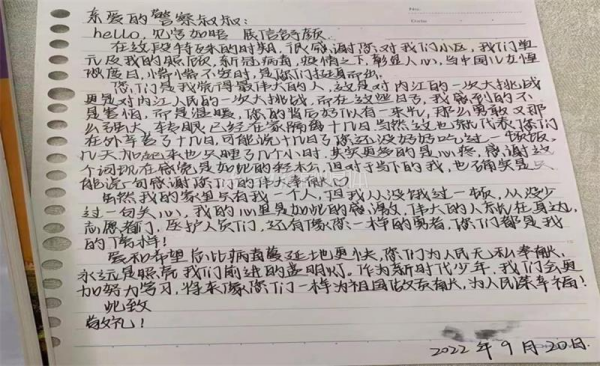 亲爱的警察叔叔:
hello,见字如晤 展信舒颜
在这段特殊的时期,很感谢您对我们小区,我们单
元及我的照顾,新冠病毒,疫情之下,彰显人心,当中国儿女惶
惶度日,惴惴不安时,是你们挺身而出。
你们是我觉得最伟大的人,这是对内江的一次大挑战
更是对内江人民的一次大挑战,而在这些日子,我感到的不
是害怕,而是温暖,你的背后好似有一束光,那么勇敢又那
么强大,转眼已经在家隔离十几日,当然这也就代表你们
在外辛苦了十几日,可能说十几日了你还没好好吃过一顿饭
几天加起来也只睡了几个小时,其实更多的是心疼,感谢这
个词现在感觉是如此的轻松,但对于当下的我,也确实是只
能说一句感谢你们的伟大奉献
虽然我的家里只有我一个人,但我从没饿过一顿,从没少
过一句关心,我的心里是如此的感激,伟大的人就在身边,
志愿者们,医护人员们,还有像你一样的勇者,你们都是我
的榜样!
爱和希望会比病毒蔓延地更快,你们为人民无私奉献,
永远是照亮我们前进的盖明灯,作为新时代少年,我们会更
加努力学习,将来像你们一样为祖国做贡献,为人民谋幸福!
此致
敬礼!
2022年9月20日.